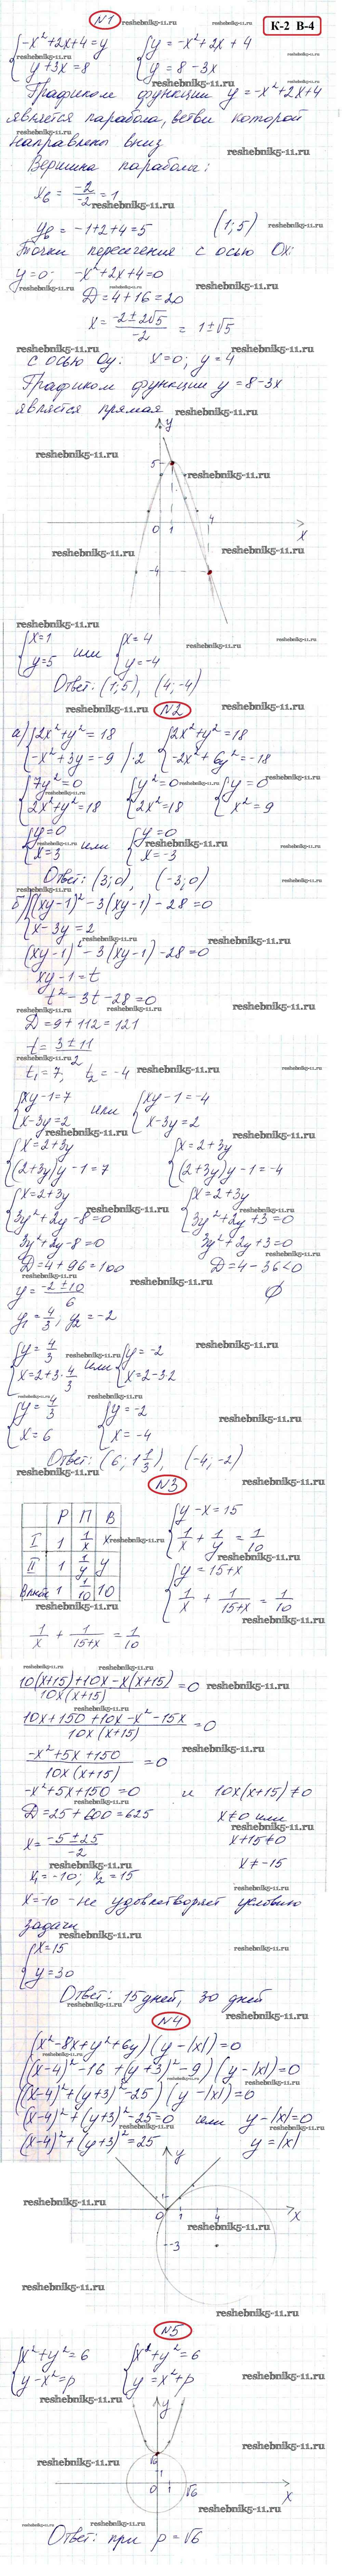 №1
К-2 В-4
{-x²+2x+4=y {y=-x²+2x+4
{y+3x=8 {y=8-3x
Графиком функции y=-x²+2x+4
является парабола, ветви которой
направлены вниз
Вершина параболы:
xв = -2/-2 = 1
yв = -1+2+4=5 (1;5)
Точки пересечения с осью Ox:
y=0: -x²+2x+4=0
D=4+16=20
x = (-2±2√5)/-2 = 1±√5
с осью Oy: x=0; y=4
Графиком функции y=8-3x
является прямая
y
5
0 1 4 x
-4
{x=1 или {x=4
{y=5 {y=-4
Ответ: (1;5), (4;-4)
№2
а) {2x²+y²=18 {2x²+y²=18
{-x²+3y=-9 |·2 {-2x²+6y²=-18
{7y²=0 {y²=0 {y=0
{2x²+y²=18 {2x²=18 {x²=9
{y=0 или {y=0
{x=3 {x=-3
Ответ: (3;0), (-3;0)
б) {(xy-1)²-3(xy-1)-28=0
{x-3y=2
(xy-1)²-3(xy-1)-28=0
xy-1=t
t²-3t-28=0
D=9+112=121
t = (3±11)/2
t₁=7, t₂=-4
{xy-1=7 или {xy-1=-4
{x-3y=2 {x-3y=2
{x=2+3y {x=2+3y
{(2+3y)y-1=7 {(2+3y)y-1=-4
{x=2+3y {x=2+3y
{3y²+2y-8=0 {3y²+2y+3=0
3y²+2y-8=0 3y²+2y+3=0
D=4+96=100 D=4-36<0
y = (-2±10)/6 ∅
y₁=4/3, y₂=-2
{y=4/3 или {y=-2
{x=2+3·4/3 {x=2-3·2
{y=4/3 {y=-2
{x=6 {x=-4
Ответ: (6; 1 1/3), (-4;-2)
№3
Р П В {y-x=15
I 1 1/x x {1/x + 1/y = 1/10
II 1 1/y y {y=15+x
Вместе 1 1/10 10 {1/x + 1/(15+x) = 1/10
1/x + 1/(15+x) = 1/10
(10(x+15)+10x-x(x+15))/(10x(x+15)) = 0
(10x+150+10x-x²-15x)/(10x(x+15)) = 0
(-x²+5x+150)/(10x(x+15)) = 0
-x²+5x+150=0 и 10x(x+15)≠0
D=25+600=625 x≠0 или
x = (-5±25)/-2 x+15≠0
x₁=-10; x₂=15 x≠-15
x=-10 - не удовлетворяет условию
задачи
{x=15
{y=30
Ответ: 15 дней, 30 дней
№4
(x²-8x+y²+6y)(y-|x|)=0
((x-4)²-16+(y+3)²-9)(y-|x|)=0
((x-4)²+(y+3)²-25)(y-|x|)=0
(x-4)²+(y+3)²-25=0 или y-|x|=0
(x-4)²+(y+3)²=25 y=|x|
y
1
0 1 4 x
-3
№5
{x²+y²=6 {x²+y²=6
{y-x²=p {y=x²+p
y
√6
1
0 1 √6 x
Ответ: при p=√6
reshebnik5-11.ru